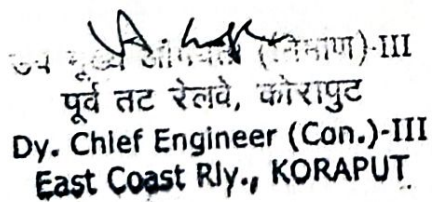 उप मुख्य अभियंता (निर्माण)-III
पूर्व तट रेलवे, कोरापुट
Dy. Chief Engineer (Con.)-III
East Coast Rly., KORAPUT